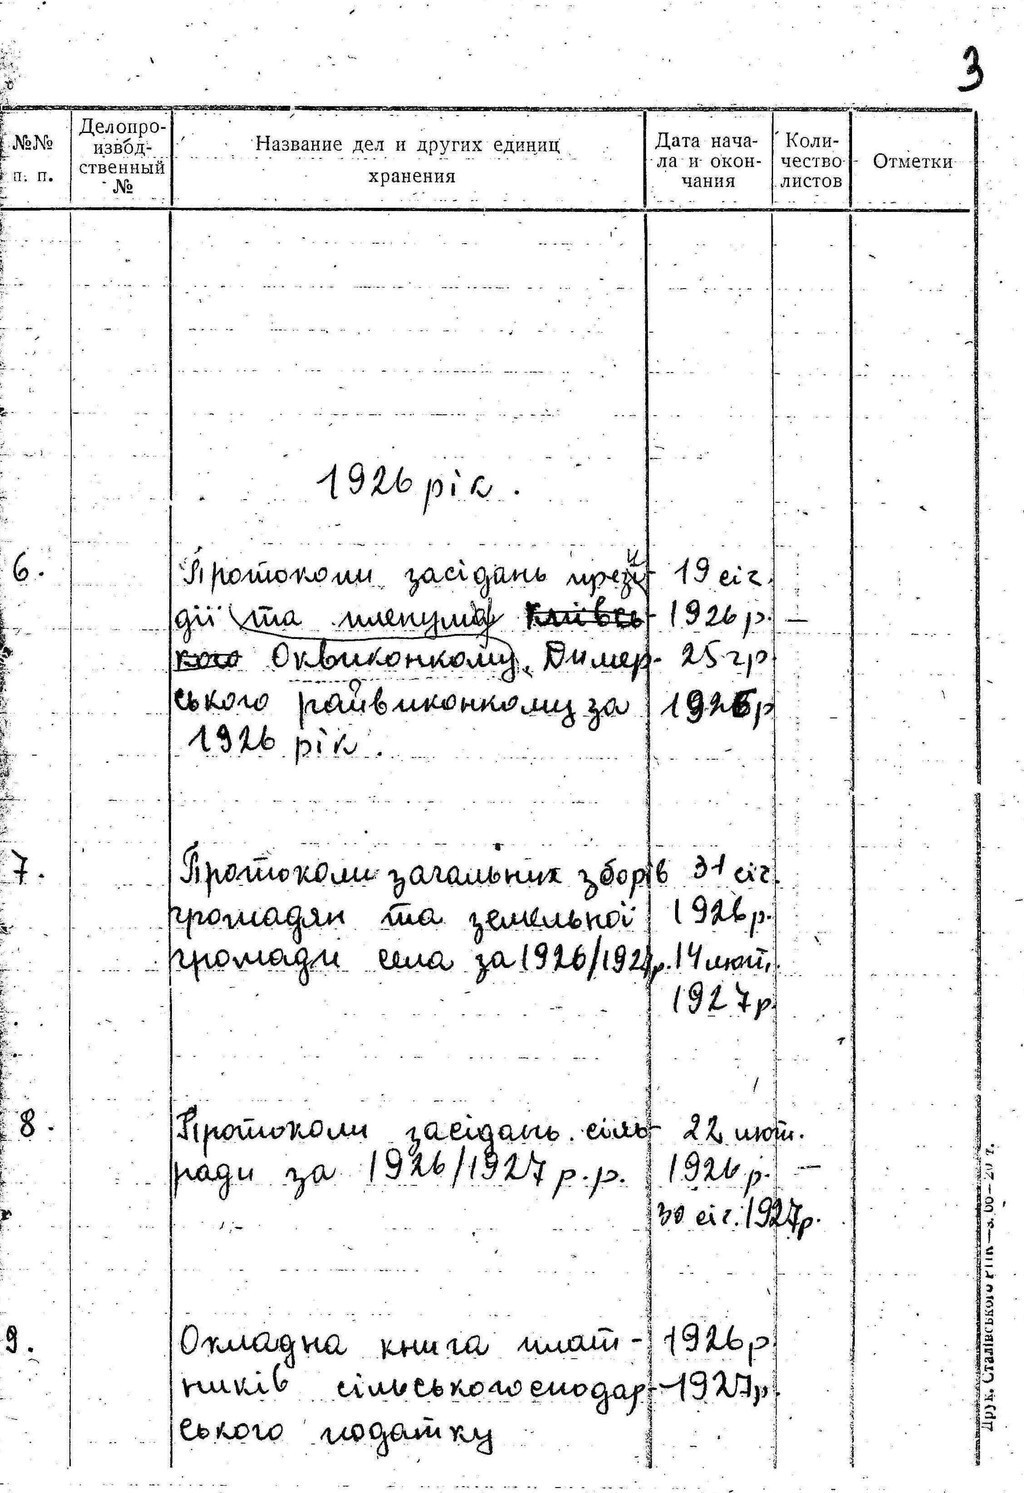 3
№№ п. п.
Делопро-
извод-
ственный
№
Название дел и других единиц
хранения
Дата нача-
ла и окон-
чания
Коли-
чество
листов
Отметки
1926 рік.
6. Протоколи засідань прези- 19 січ.
дії та пленума Київсь- 1926 р. —
кого Оквиконкому, Димер- 25 гр
ського райвиконкому за 1926 р
1926 рік.
7. Протоколи загальних зборів 31 січ.
громадян та земельної 1926 р.
громади села за 1926/1927 р. 14 лют.
1927 р.
8. Протоколи засідань сіль- 22 лют.
ради за 1926/1927 р.р. 1926 р. —
30 січ. 1927 р.
9. Окладна книга плат- 1926 р
ників сільськогосподар- -1927 р.
ського податку
Друк. Сталінського